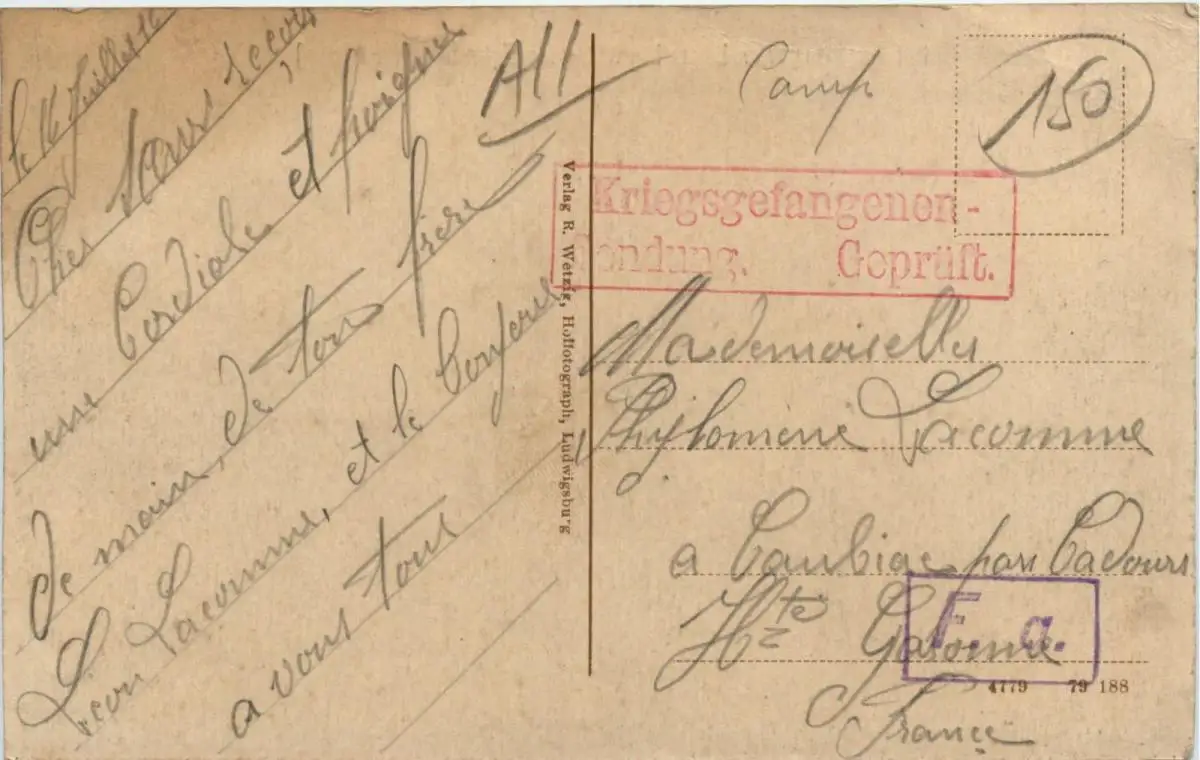 le 16 Juillet 16
Cher tous reçois
une Cordiale et poigné
de main, de ton frère
Léon Lacomme, et le Confère
a vous tous
All
Verlag R. Wetzig, Hoffotograph, Ludwigsburg
Camp
150
Kriegsgefangenen-
Sendung. Geprüft.
Mademoiselle
Phylomene Lacomme
a Caubiac par Cadours
Hte Garonne
France
F. a.
4779 79 188